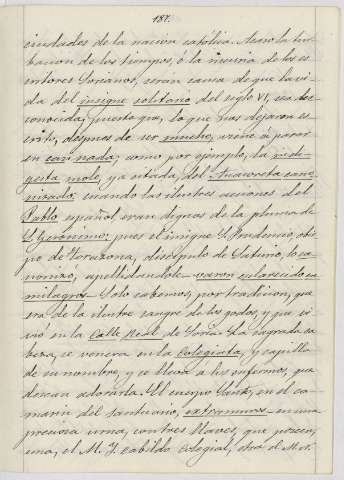 187.
ciudades de la nación católica. Acaso la tur-
bación de los tiempos, ó la incuria de los es-
critores Sorianos, serán causa de que la vi-
da del insigne solitario del siglo VI, sea des-
conocida, puesto que, lo que nos dejaron es-
crito, despues de ser mucho, viene á parar
en casi nada; como por ejemplo, la indi-
gesta mole, ya citada, del Anacoreta cano-
nizado; cuando las ilustres acciones del
Pablo español, eran dignas de la pluma de
S. Gerónimo: pues el insigne S. Prudencio, obis-
po de Tarazona, discipulo de Saturio, lo ca-
nonizó, apellidandole varon esclarecido en
milagros. Solo sabemos, por tradicion, que
era de la ilustre sangre de los godos, y que vi-
vió en la Calle Real de Soria. La sagrada ca-
beza, se venera en la Colegiata, y capilla
de su nombre, y se lleva á los enfermos, que
desean adorarla. El cuerpo Santo, en el ca-
marin del Santuario, extramuros en una
preciosa urna, con tres llaves, que poseen,
una, el M. I. Cabildo Colegial, otra el M. N.